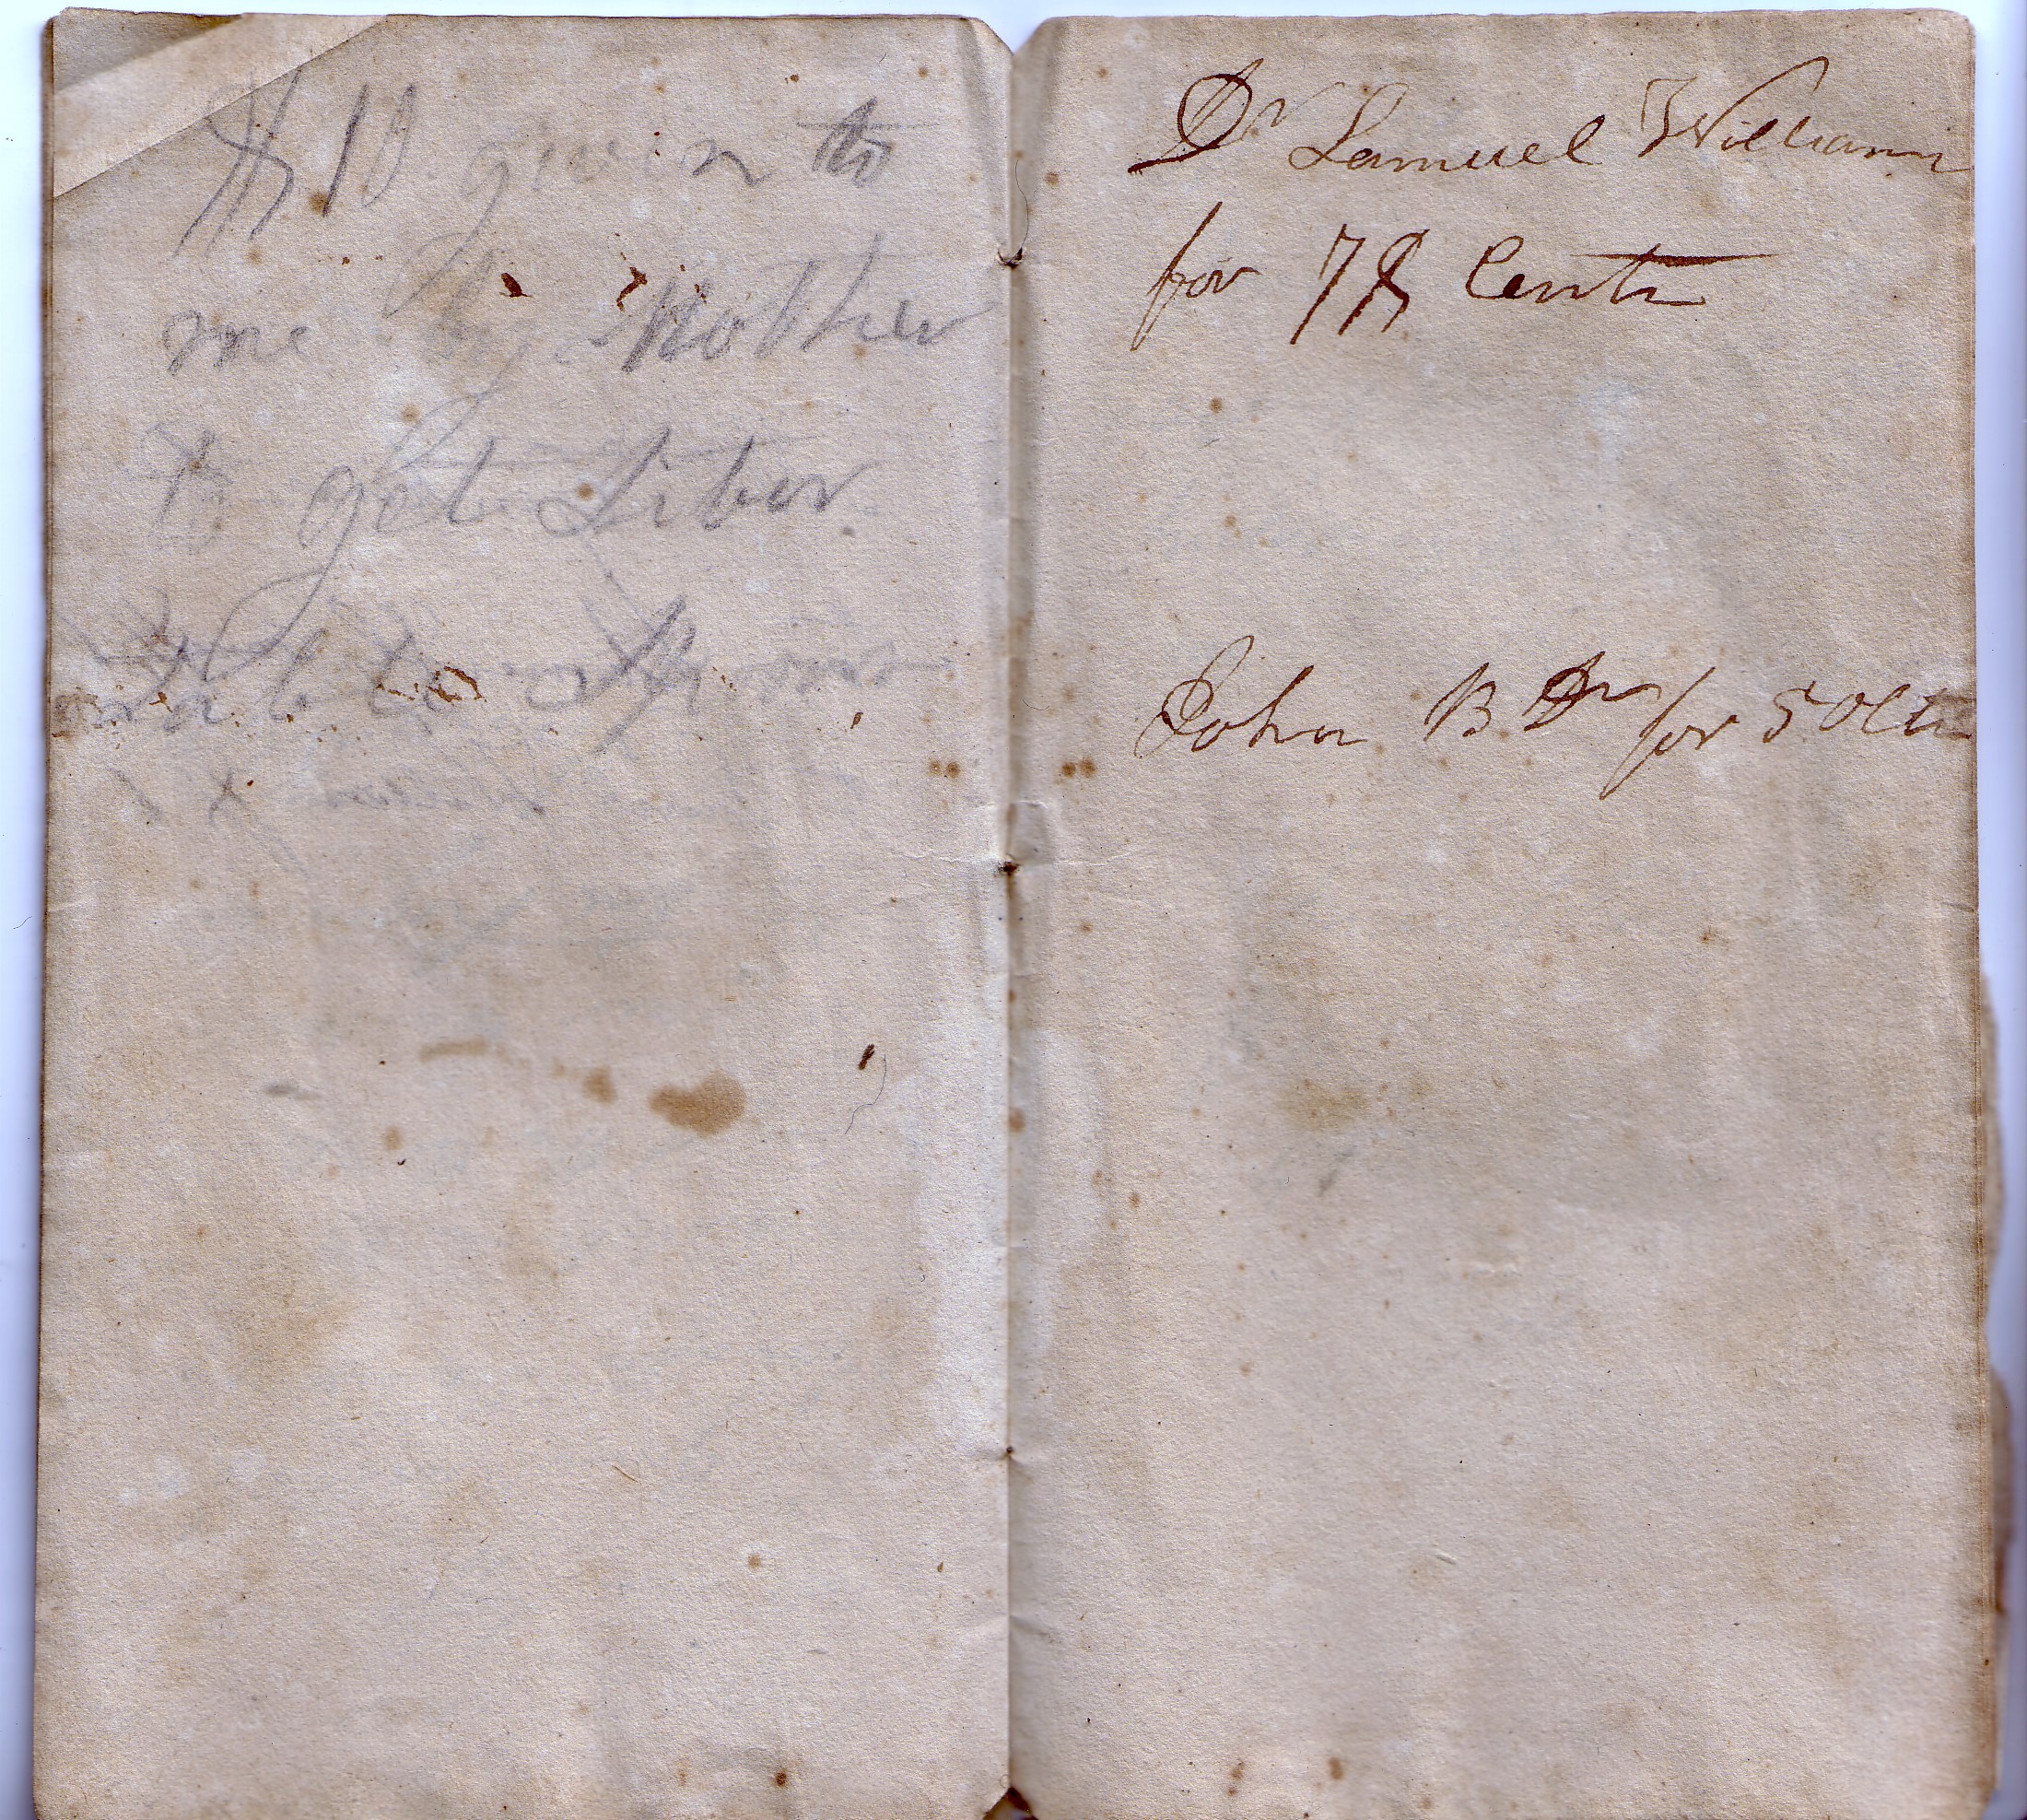 $10 given to
me by Mother
to get Silver
table spoons
Dr Samuel Williams
for 78 Cents
John B Dr for 50 Cts